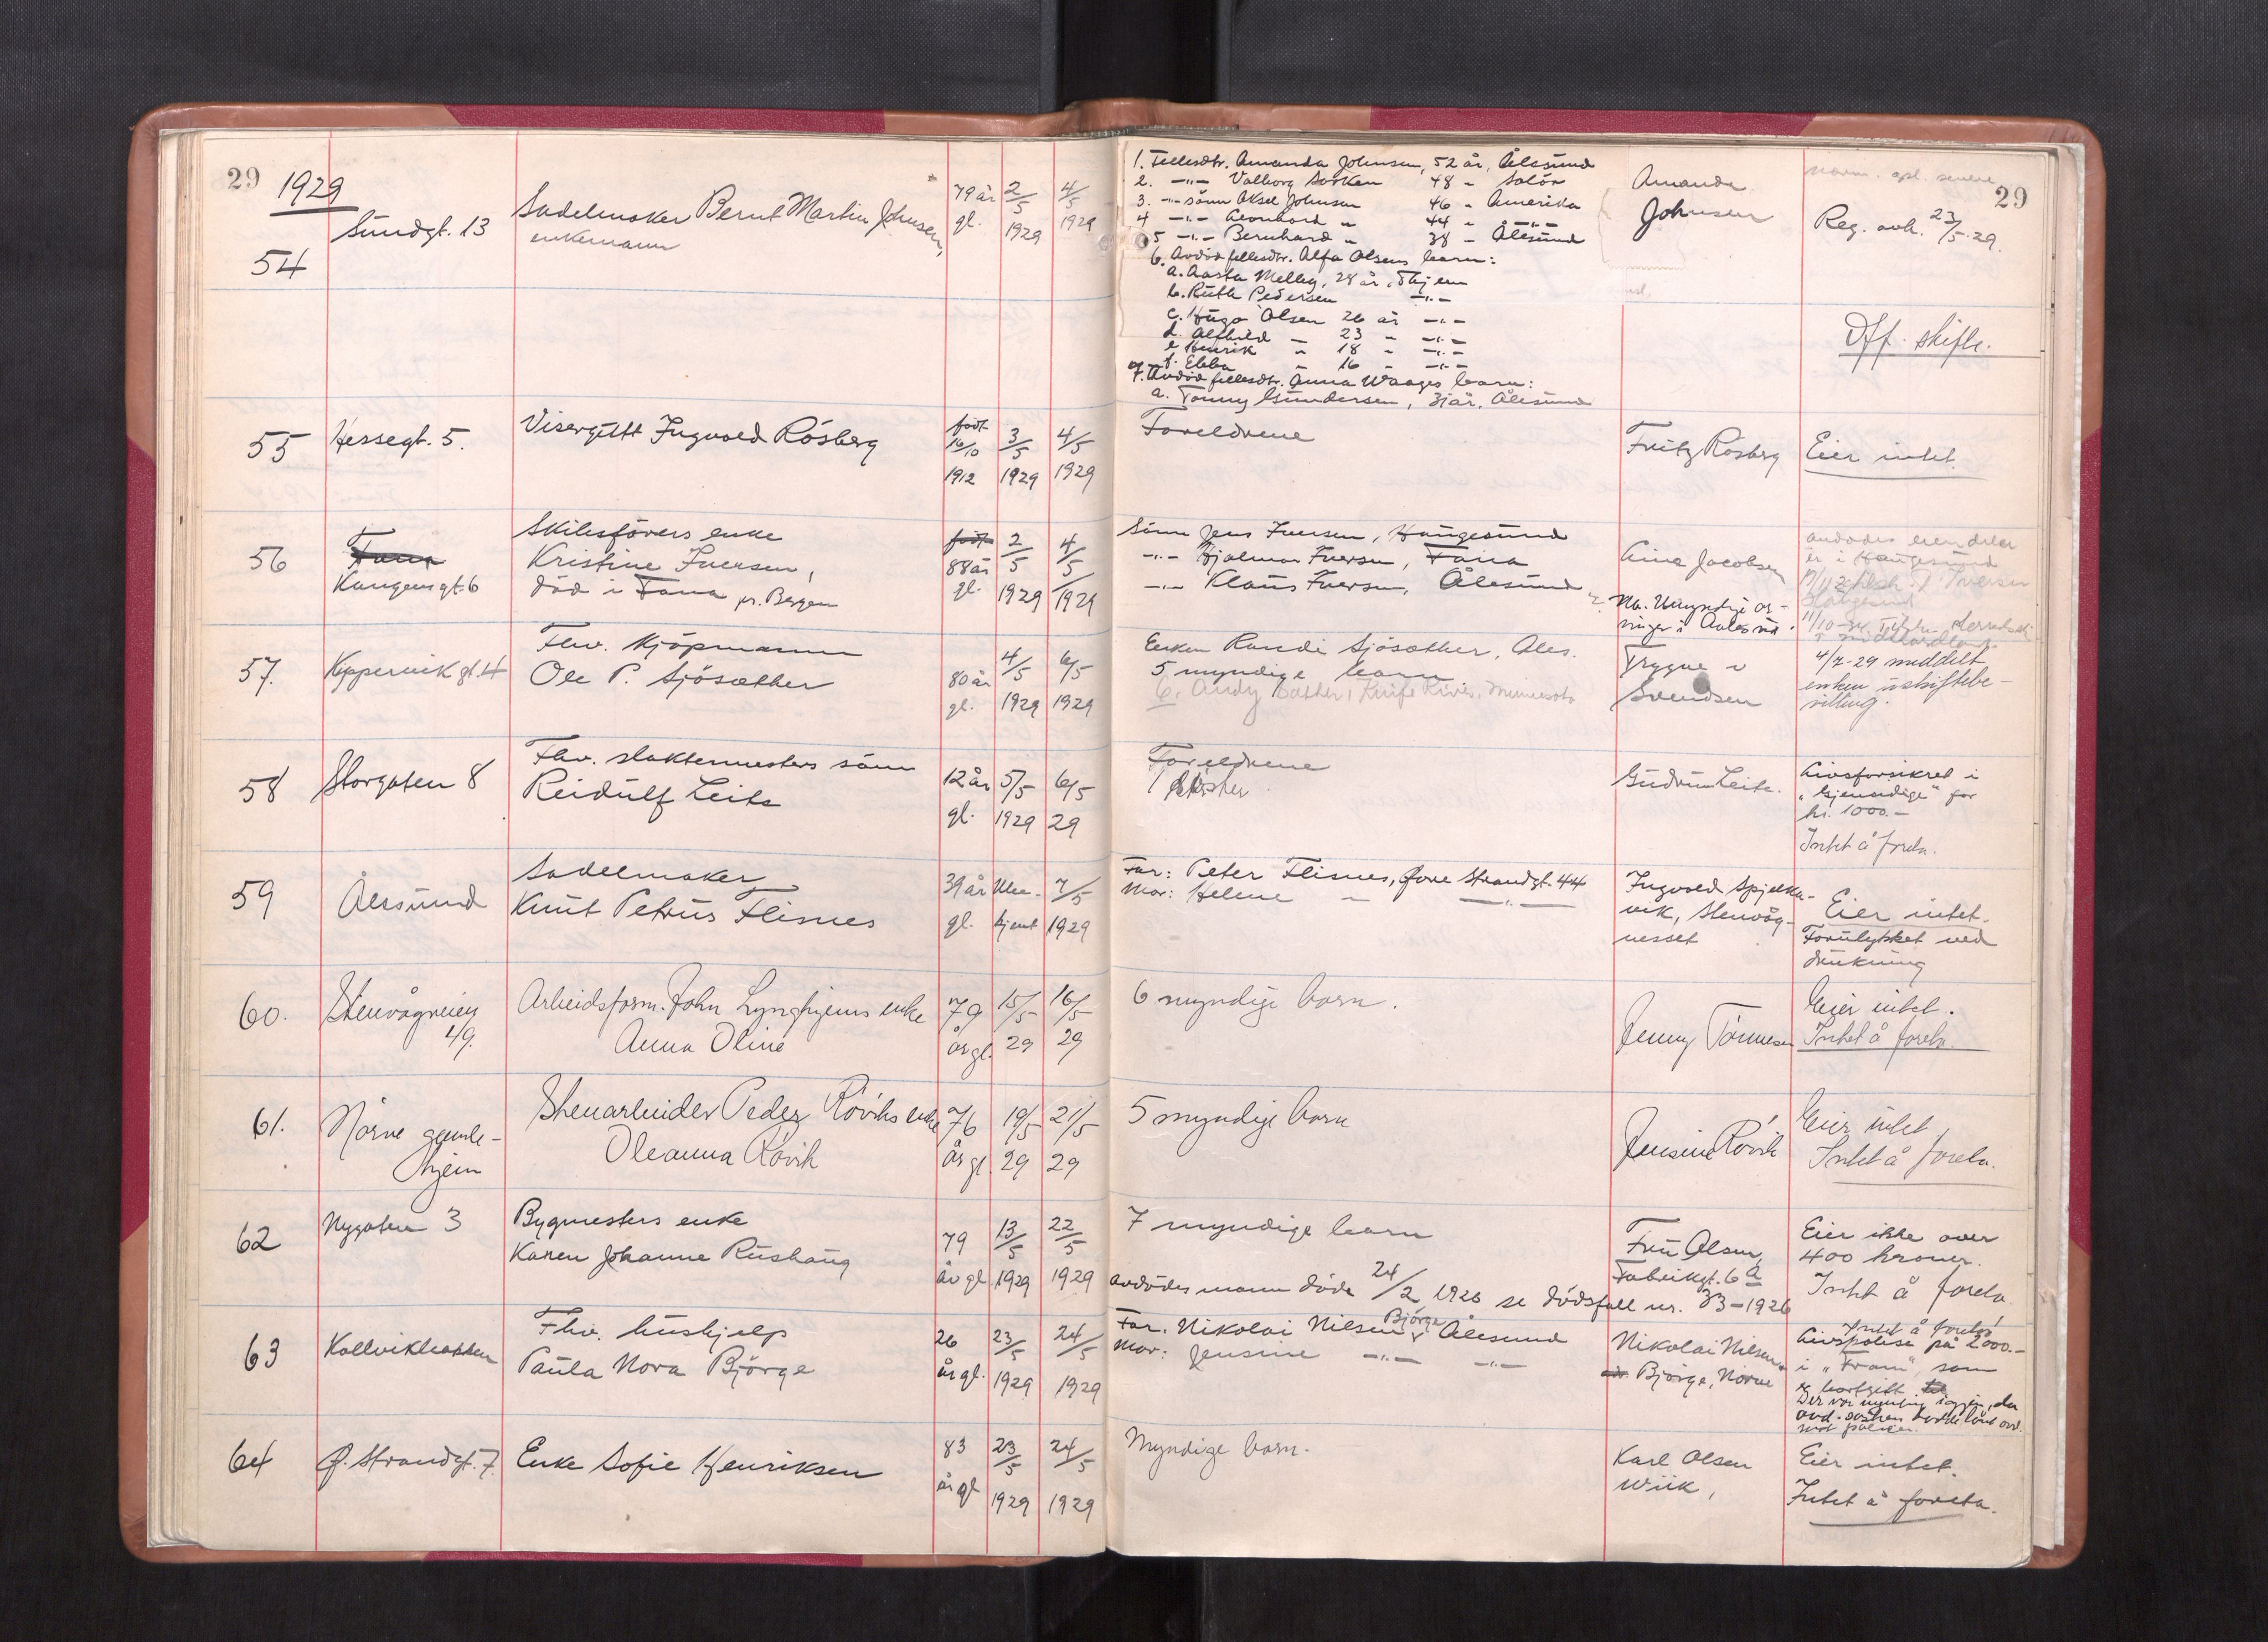 29
1929
54
Sundgt. 13
Sadelmaker Bernt Martin Johnsen,
enkemann
79 år gl.
2/5 1929
4/5 1929
1. Fellesdtr. Amanda Johnsen, 52 år, Ålesund
2. -"- Valborg Sorken 48 - Solör
3. -"- sönn Aksel Johnsen 46 - Amerika
4 -"- Leonhard " 44 " -"-
5 -"- Bernhard " 38 - Ålesund
6. Avdöd fellesdtr. Alfa Olsens barn:
a. Aasta Melbey, 28 år, Thjem
b. Ruth Pedersen -"-
c. Hugo Olsen 26 år -"-
d. Alfhild - 23 " -"-
e Henrik " 18 - -"-
f. Ebba " 16 - -"-
7. Avdöd fellesdtr. Anna Waages barn:
a. Tonny Gundersen, 31 år, Ålesund
Amanda
Johnsen
29
Reg. avh. 23/5-29.
Off. skifte.
55
Hessegt. 5.
Visergutt Ingvald Rösberg
född 16/10 1912
3/5 1929
4/5 1929
Foreldrene
Fritz Rösberg
Eier intet.
56
Fana
Kongensgt. 6
Skibsförers enke
Kristine Iversen,
död i Fana pr. Bergen
född
88 år gl.
2/5 1929
4/5 1929
Sönn Jens Iversen, Haugesund
-"- Hjalmar Iversen, Fana
-"- Klaus Iversen, Ålesund
Aina Jacobsen
Nb. Umyndige ar-
vinger i Aalesund.
avdödes eiendeler
er i Haugesund
57.
Kippervikgt. 4
Fhv. kjöpmann
Ole P. Sjösæther
80 år gl.
4/5 1929
6/5 1929
Enken Randi Sjösæther, Ales.
5 myndige barn
6. Andy Sæther, Knife River, Minnesota
Trygve
Svendsen
4/7-29 meddelt
enken uskiftebe-
villing.
58
Storgaten 8
Fhv. slaktermesters sönn
Reidulf Leite
12 år gl.
5/5 1929
6/5 29
Foreldrene
1 söster
Gudrun Leite.
Livsforsikret i
"Gjensidige" for
kr. 1000.-
Intet å foreta.
59
Ålesund
Sadelmaker
Knut Petrus Flisnes
39 år gl.
Uke- kjent
7/5 1929
Far: Peter Flisnes, Övre Strandgt. 44
Mor: Helene " -"-
Ingvald Spjelka-
vik, Stenvåg-
nesset
Eier intet.
Forulykket ved
drukning
60.
Stenvågveien
49.
Arbeidsform. John Lynghjems enke
Anna Oline
79 år gl.
15/5 29
16/5 29
6 myndige barn.
Jenny Tönnesen
Eier intet.
Intet å foreta.
61.
Nörve gamle-
hjem
Stenarbeider Peder Rövik's enke
Oleanna Rövik
76 år gl.
19/5 29
21/5 29
5 myndige barn
Jensine Rövik
Eier intet
Intet å foreta.
62
Nygaten 3
Bygmesters enke
Karen Johanne Rushaug
79 år gl
13/5 1929
22/5 1929
7 myndige barn
avdödes mann döde 24/2 1926 se dödsfall nr. 33-1926
Fru Olsen,
Fabrikgt. 6 a
Eier ikke over
400 kroner.
Intet å foreta.
63
Kollvikbakken
Fhv. hushjelp
Paula Nora Björge
26 år gl.
23/5 1929
24/5 1929
Far. Nikolai Nilsen Björge, Ålesund
Mor: Jensine -"- -"-
Nikolai Nilsen
Björge, Nörve
Intet å foreta!
Livspolise på 2000.-
i "Fram", som
er bortgitt
64
Ö. Strandgt. 7.
Enke Sofie Henriksen
83 år gl
23/5 1929
24/5 1929
Myndige barn.
Karl Olsen
Wiik,
Eier intet.
Intet å foreta.